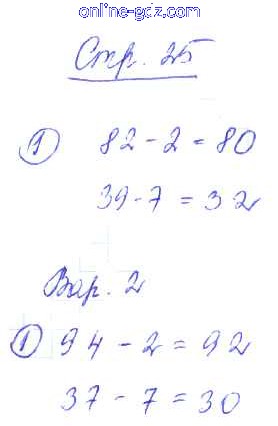 online-gdz.com
Стр. 25
1 82 - 2 = 80
39 - 7 = 32
Вар. 2
1 94 - 2 = 92
37 - 7 = 30